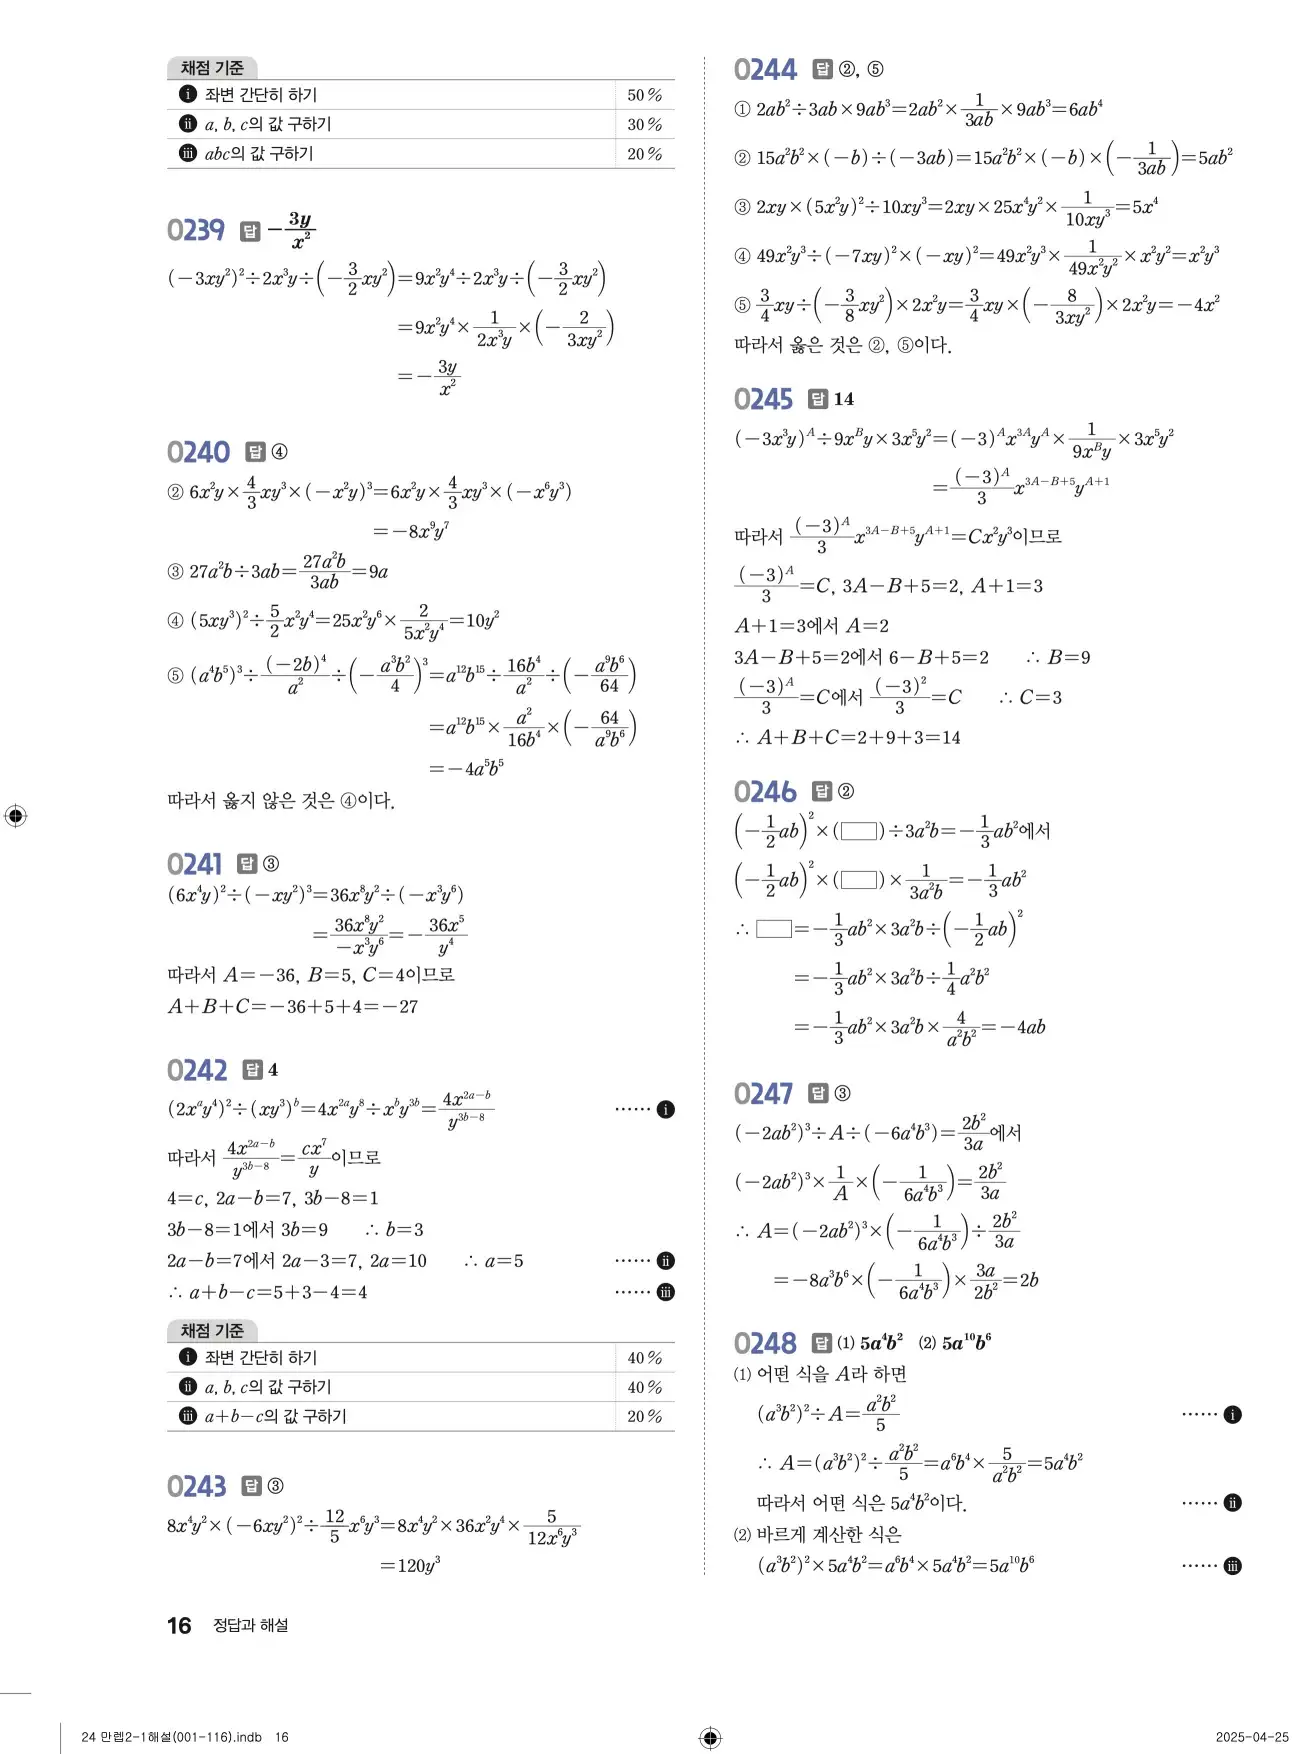 채점 기준
ⅰ 좌변 간단히 하기 50%
ⅱ a, b, c의 값 구하기 30%
ⅲ abc의 값 구하기 20%
0239 답 -3y/x²
(-3xy²)²÷2x³y÷(-3/2 xy²)=9x²y⁴÷2x³y÷(-3/2 xy²)
=9x²y⁴×1/(2x³y)×(-2/(3xy²))
=-3y/x²
0240 답 ④
② 6x²y×4/3 xy³×(-x²y)³=6x²y×4/3 xy³×(-x⁶y³)
=-8x⁹y⁷
③ 27a²b÷3ab=27a²b/3ab=9a
④ (5xy³)²÷5/2 x²y⁴=25x²y⁶×2/(5x²y⁴)=10y²
⑤ (a⁴b⁵)³÷(-2b)⁴/a²÷(-a³b²/4)³=a¹²b¹⁵÷16b⁴/a²÷(-a⁹b⁶/64)
=a¹²b¹⁵×a²/16b⁴×(-64/a⁹b⁶)
=-4a⁵b⁵
따라서 옳지 않은 것은 ④이다.
0241 답 ③
(6x⁴y)²÷(-xy²)³=36x⁸y²÷(-x³y⁶)
=36x⁸y²/-x³y⁶=-36x⁵/y⁴
따라서 A=-36, B=5, C=4이므로
A+B+C=-36+5+4=-27
0242 답 4
(2xᵃy⁴)²÷(xy³)ᵇ=4x²ᵃy⁸÷xᵇy³ᵇ=4x²ᵃ⁻ᵇ/y³ᵇ⁻⁸ …… ⅰ
따라서 4x²ᵃ⁻ᵇ/y³ᵇ⁻⁸=cx⁷/y이므로
4=c, 2a-b=7, 3b-8=1
3b-8=1에서 3b=9 ∴ b=3
2a-b=7에서 2a-3=7, 2a=10 ∴ a=5 …… ⅱ
∴ a+b-c=5+3-4=4 …… ⅲ
채점 기준
ⅰ 좌변 간단히 하기 40%
ⅱ a, b, c의 값 구하기 40%
ⅲ a+b-c의 값 구하기 20%
0243 답 ③
8x⁴y²×(-6xy²)²÷12/5 x⁶y³=8x⁴y²×36x²y⁴×5/(12x⁶y³)
=120y³
0244 답 ②, ⑤
① 2ab²÷3ab×9ab³=2ab²×1/3ab×9ab³=6ab⁴
② 15a²b²×(-b)÷(-3ab)=15a²b²×(-b)×(-1/3ab)=5ab²
③ 2xy×(5x²y)²÷10xy³=2xy×25x⁴y²×1/10xy³=5x⁴
④ 49x²y³÷(-7xy)²×(-xy)²=49x²y³×1/49x²y²×x²y²=x²y³
⑤ 3/4 xy÷(-3/8 xy²)×2x²y=3/4 xy×(-8/3xy²)×2x²y=-4x²
따라서 옳은 것은 ②, ⑤이다.
0245 답 14
(-3x³y)ᴬ÷9xᴮy×3x⁵y²=(-3)ᴬx³ᴬyᴬ×1/9xᴮy×3x⁵y²
=(-3)ᴬ/3 x³ᴬ⁻ᴮ⁺⁵yᴬ⁺¹
따라서 (-3)ᴬ/3 x³ᴬ⁻ᴮ⁺⁵yᴬ⁺¹=Cx²y³이므로
(-3)ᴬ/3=C, 3A-B+5=2, A+1=3
A+1=3에서 A=2
3A-B+5=2에서 6-B+5=2 ∴ B=9
(-3)ᴬ/3=C에서 (-3)²/3=C ∴ C=3
∴ A+B+C=2+9+3=14
0246 답 ②
(-1/2 ab)²×(□)÷3a²b=-1/3 ab²에서
(-1/2 ab)²×(□)×1/3a²b=-1/3 ab²
∴ □=-1/3 ab²×3a²b÷(-1/2 ab)²
=-1/3 ab²×3a²b÷1/4 a²b²
=-1/3 ab²×3a²b×4/a²b²=-4ab
0247 답 ③
(-2ab²)³÷A÷(-6a⁴b³)=2b²/3a에서
(-2ab²)³×1/A×(-1/6a⁴b³)=2b²/3a
∴ A=(-2ab²)³×(-1/6a⁴b³)÷2b²/3a
=-8a³b⁶×(-1/6a⁴b³)×3a/2b²=2b
0248 답 (1) 5a⁴b² (2) 5a¹⁰b⁶
(1) 어떤 식을 A라 하면
(a³b²)²÷A=a²b²/5 …… ⅰ
∴ A=(a³b²)²÷a²b²/5=a⁶b⁴×5/a²b²=5a⁴b²
따라서 어떤 식은 5a⁴b²이다. …… ⅱ
(2) 바르게 계산한 식은
(a³b²)²×5a⁴b²=a⁶b⁴×5a⁴b²=5a¹⁰b⁶ …… ⅲ
16 정답과 해설
24 만렙2-1해설(001-116).indb 16
2025-04-25